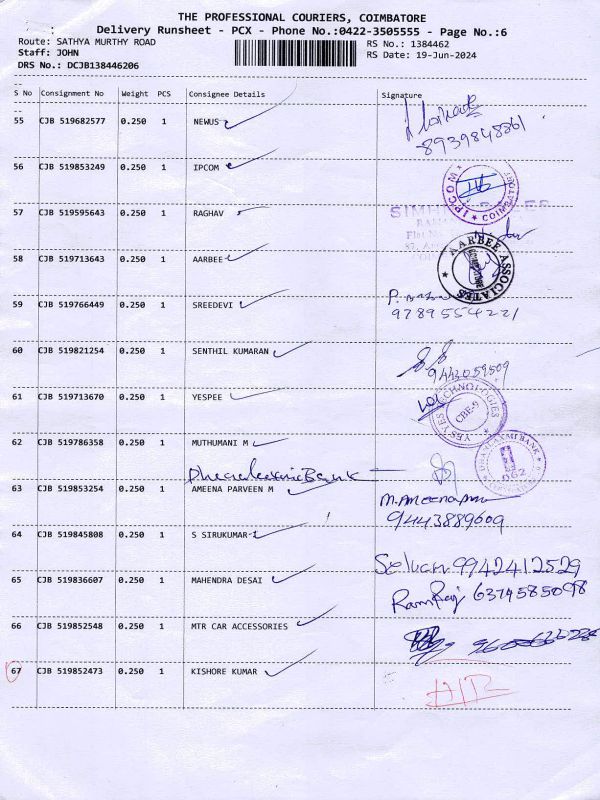 THE PROFESSIONAL COURIERS, COIMBATORE
Delivery Runsheet - PCX - Phone No.:0422-3505555 - Page No.:6
Route: SATHYA MURTHY ROAD
Staff: JOHN
DRS No.: DCJB138446206
RS No.: 1384462
RS Date: 19-Jun-2024
S No Consignment No Weight PCS Consignee Details Signature
55 CJB 519682577 0.250 1 NEWUS
8939848861
56 CJB 519853249 0.250 1 IPCOM
IPCOM ★ COIMBATORE ★
57 CJB 519595643 0.250 1 RAGHAV
58 CJB 519713643 0.250 1 AARBEE
AARBEE ASSOCIATES ★
59 CJB 519766449 0.250 1 SREEDEVI
9789554221
60 CJB 519821254 0.250 1 SENTHIL KUMARAN
9443059509
61 CJB 519713670 0.250 1 YESPEE
YES YES TECHNOLOGIES CBE-9
62 CJB 519786358 0.250 1 MUTHUMANI M
DhanalaxmiBank
DHANALAXMI BANK 062
63 CJB 519853254 0.250 1 AMEENA PARVEEN M
9443889609
64 CJB 519845808 0.250 1 S SIRUKUMAR
Selvan 9942412529
65 CJB 519836607 0.250 1 MAHENDRA DESAI
RamRaj 6374585098
66 CJB 519852548 0.250 1 MTR CAR ACCESSORIES
67 CJB 519852473 0.250 1 KISHORE KUMAR